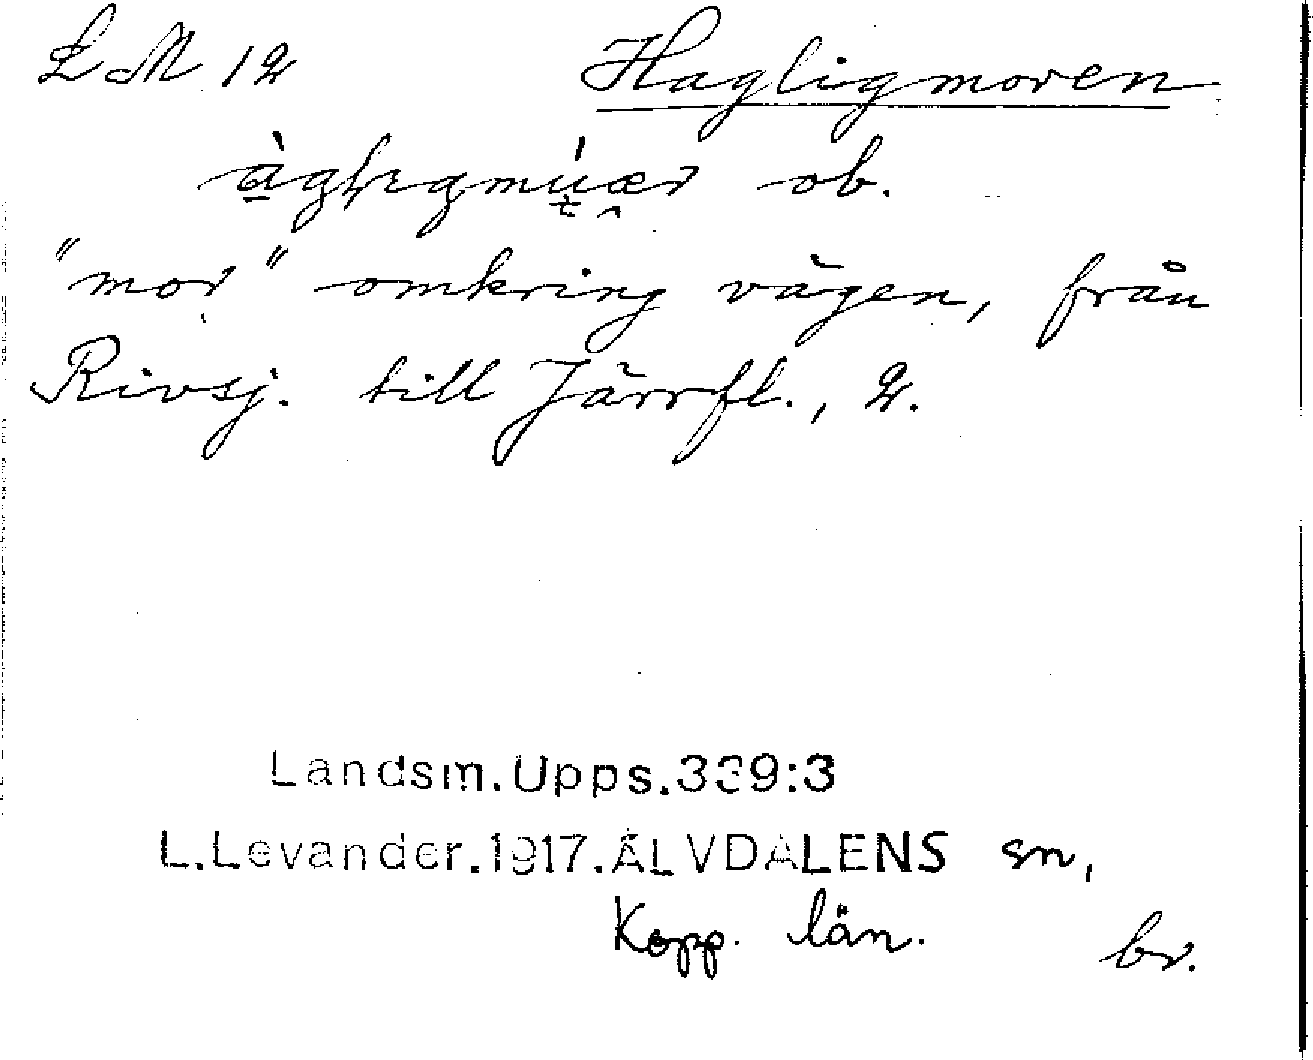 LM 12 Hagligmoren
ob.
"mor" omkring vägen, från
Rivsj. till Järrfl., 2.
Landsm.Upps.339:3
L.Levander.1917.ÄLVDALENS sn,
Kopp. län. br.